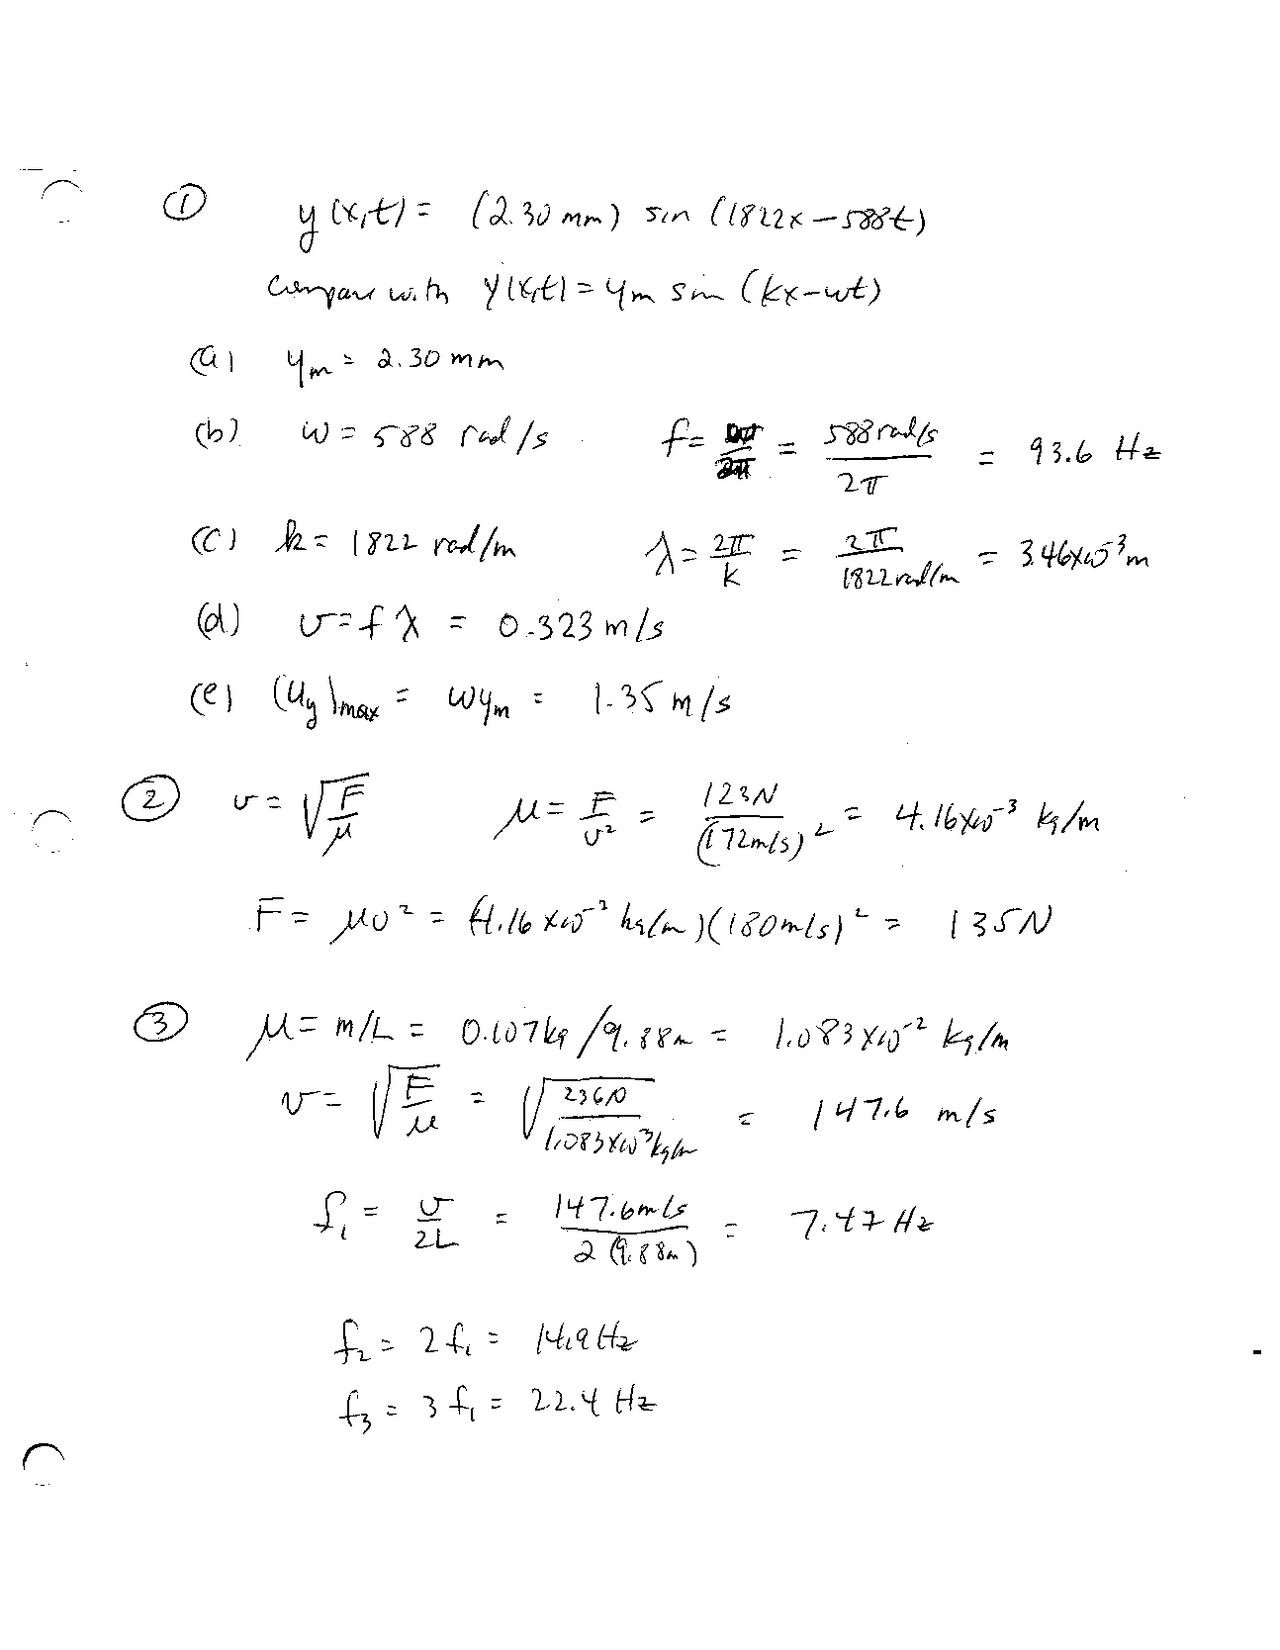 ① y(x,t) = (2.30 mm) sin (1822x − 588t)
compare with y(x,t) = ym sin (kx − ωt)
(a) ym = 2.30 mm
(b) ω = 588 rad/s f = ω/2π = 588 rad/s / 2π = 93.6 Hz
(c) k = 1822 rad/m λ = 2π/k = 2π / 1822 rad/m = 3.46×10⁻³ m
(d) v = fλ = 0.323 m/s
(e) (uy)max = ωym = 1.35 m/s
② v = √(F/μ) μ = F/v² = 123N / (172m/s)² = 4.16×10⁻³ kg/m
F = μv² = (4.16×10⁻³ kg/m)(180m/s)² = 135N
③ μ = m/L = 0.107kg/9.88m = 1.083×10⁻² kg/m
v = √(F/μ) = √(236N / 1.083×10⁻³ kg/m) = 147.6 m/s
f₁ = v/2L = 147.6m/s / 2(9.88m) = 7.47 Hz
f₂ = 2f₁ = 14.9 Hz
f₃ = 3f₁ = 22.4 Hz